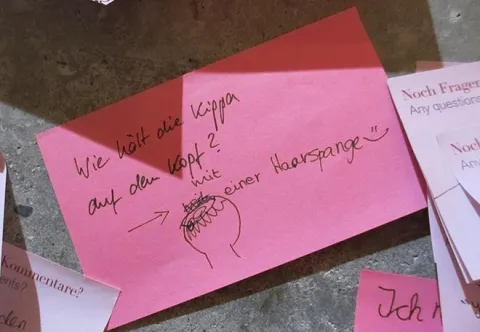 Wie hält die Kippa
auf dem Kopf?
→ mit einer Haarspange
Noch Fragen
Any questions
Noch
Any
Kommentare?
ents?
den
Ich